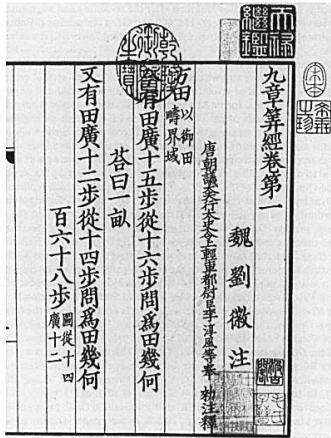 九章筭經卷第一
魏劉徽注
唐朝議大夫行太史令上輕車都尉臣李淳風等奉勑注釋
方田以御田疇界域
今有田廣十五步從十六步問爲田幾何
荅曰一畝
又有田廣十二步從十四步問爲田幾何
百六十八步圖從十四廣十二
天禄繼鑑